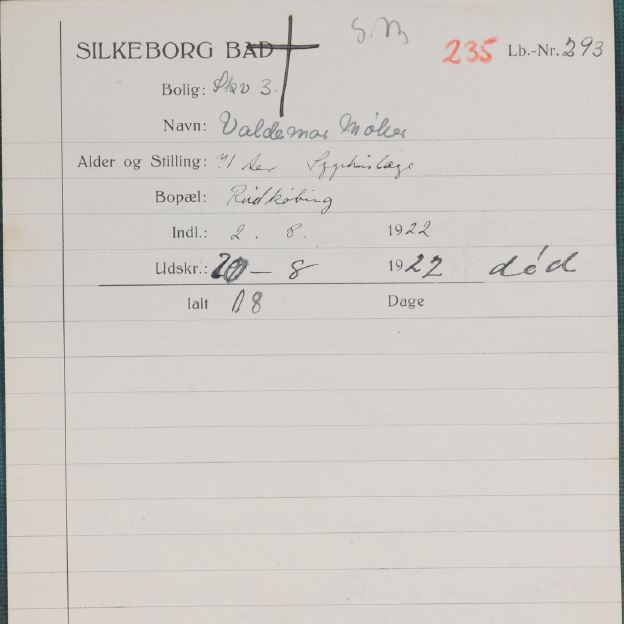 S.M
SILKEBORG BAD 235 Lb.-Nr. 293
Bolig: Skv 3.
Navn: Valdemar Møller
Alder og Stilling: Aar Sygehuslæge
Bopæl: Rudkøbing
Indl.: 2. 8. 1922
Udskr.: 20 – 8 1922 död
Ialt 18 Dage